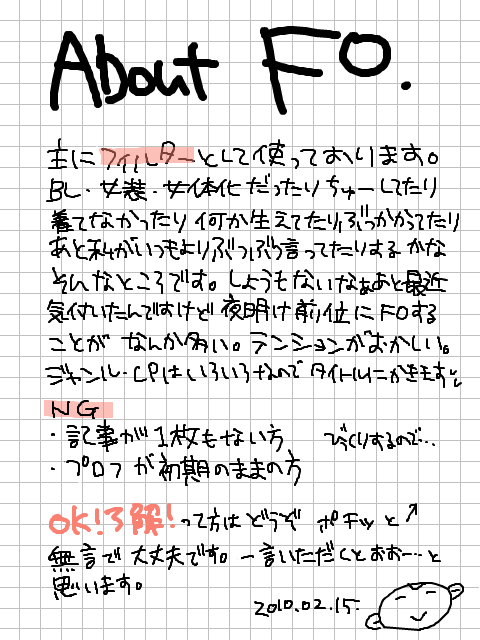 About FO.
主にフィルターとして使っております。
BL・女装・女体化だったりちゅーしてたり
着てなかったり何か生えてたりぶつかってたり
あと私がいつもよりぶつぶつ言ってたりするかな
そんなところです。しょうもないなぁあと最近
気付いたんですけど夜明け前位にFOする
ことがなんか多い。テンションがおかしい。
ジャンル・CPはいろいろなのでタイトルにかきます
NG
・記事が1枚もない方 びっくりするので…
・プロフが初期のままの方
OK!了解!って方はどうぞ ポチッと↗
無言で大丈夫です。一言いただくとおお…と
思います。
2010.02.15.